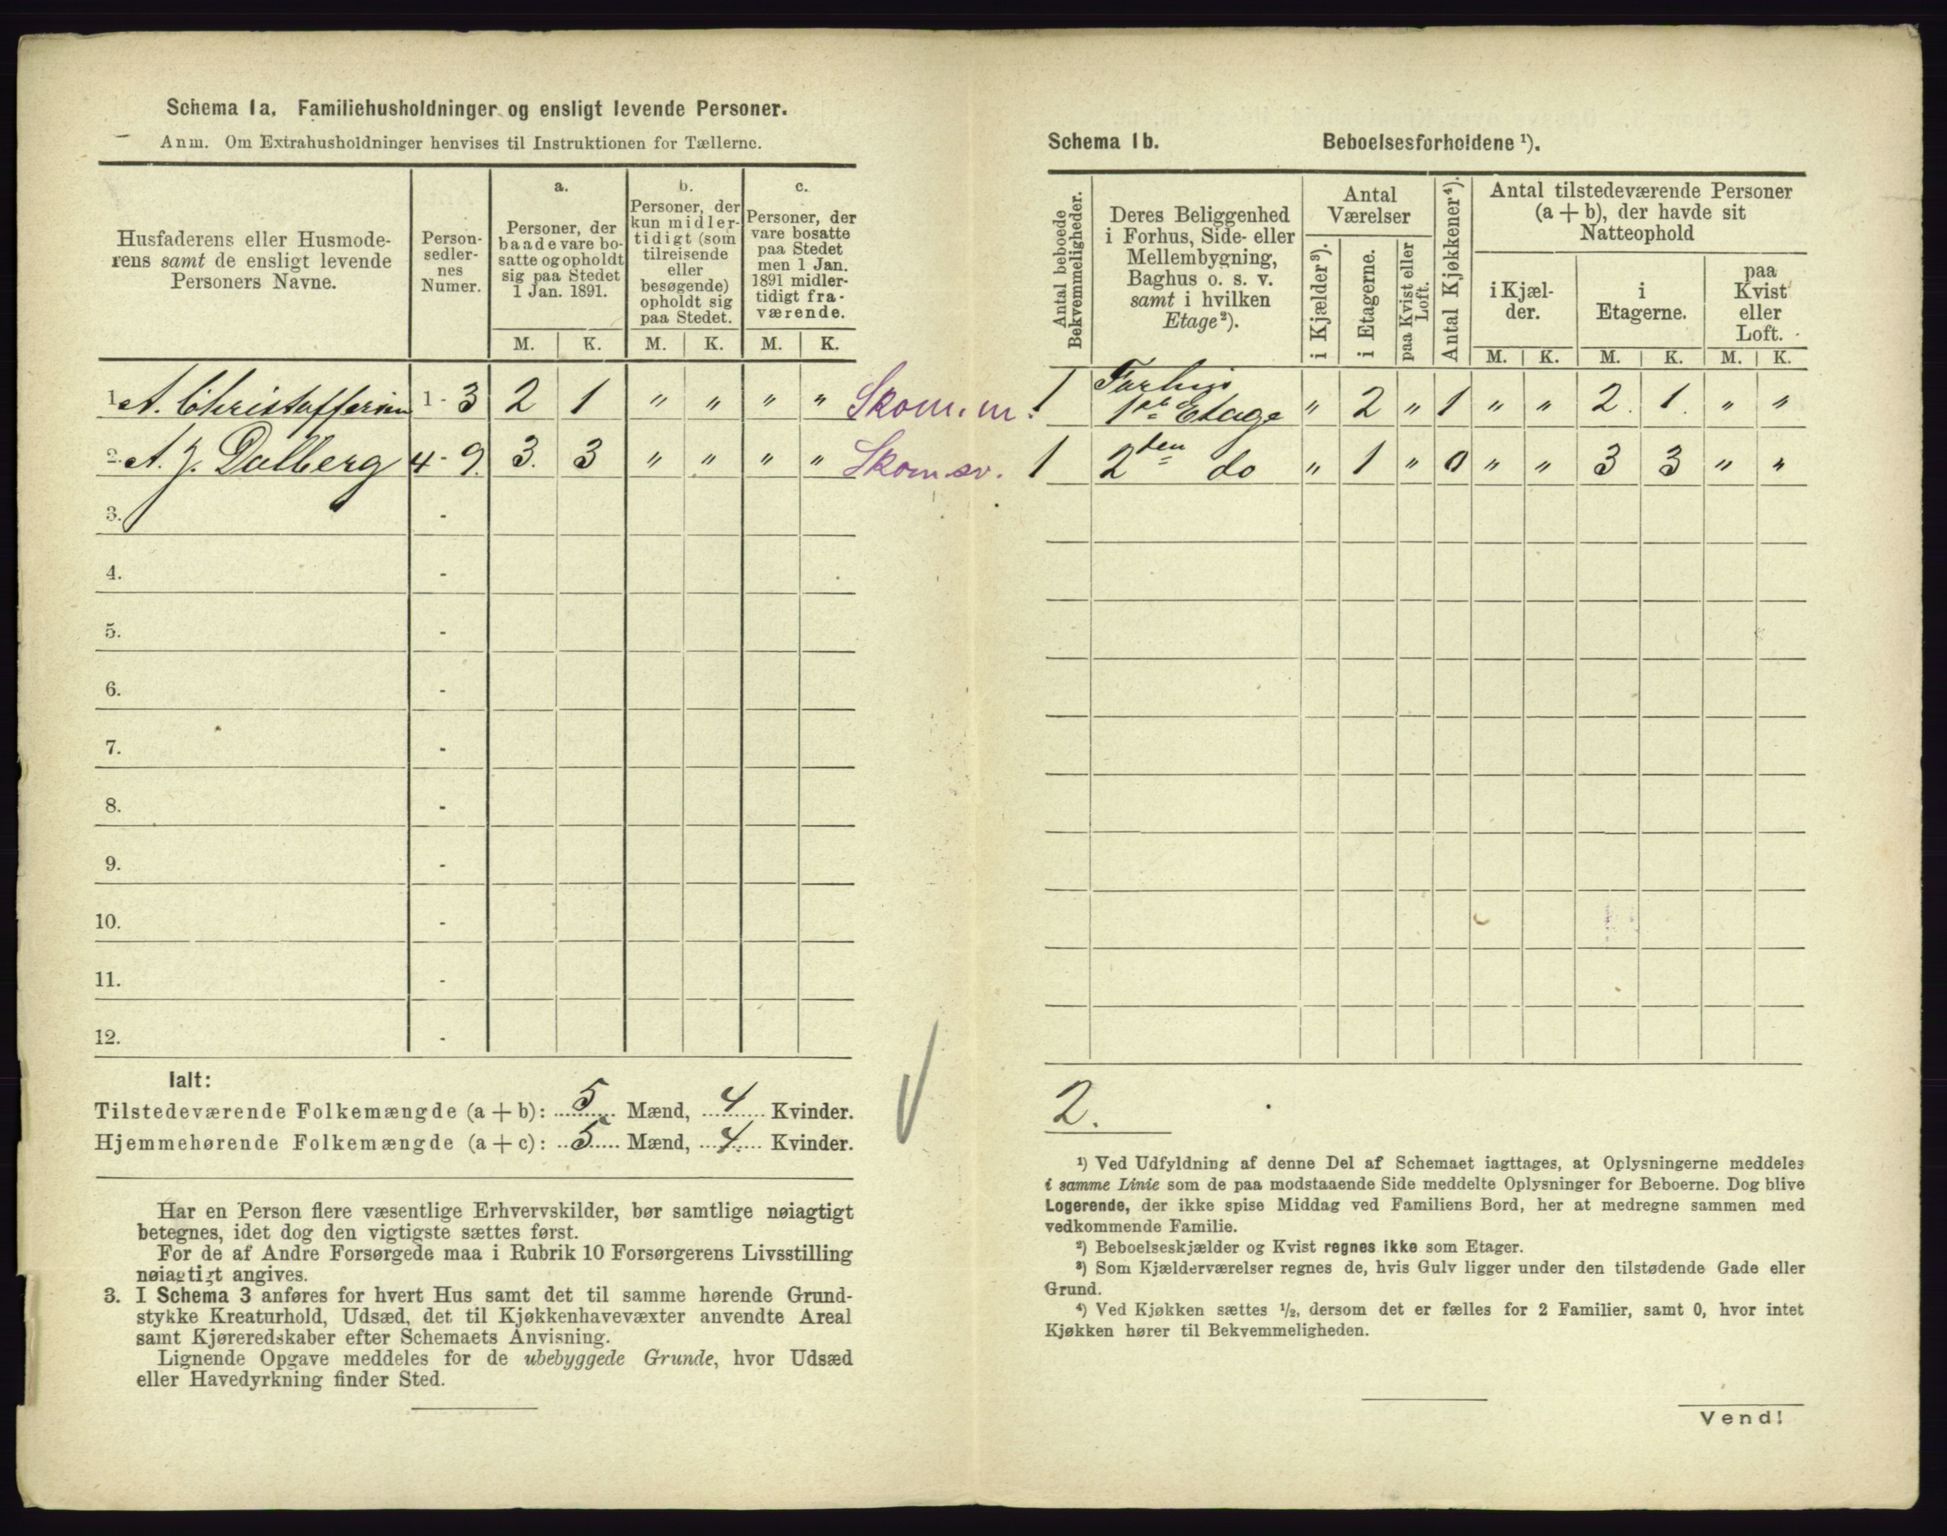 Schema 1a. Familiehusholdninger og ensligt levende Personer.
Anm. Om Extrahusholdninger henvises til Instruktionen for Tællerne.
Husfaderens eller Husmode-
rens samt de ensligt levende
Personers Navne.
Person-
sedler-
nes
Numer.
a.
Personer, der
baade vare bo-
satte og opholdt
sig paa Stedet
1 Jan. 1891.
b.
Personer, der
kun midler-
tidigt (som
tilreisende
eller
besøgende)
opholdt sig
paa Stedet.
c.
Personer, der
vare bosatte
paa Stedet
men 1 Jan.
1891 midler-
tidigt fra-
værende.
M. K. M. K. M. K.
1. A. Christoffersen 1 - 3 2 1 " " " " Skom. m.
2. A. J. Dalberg 4 - 9. 3. 3 " " " " Skom.sv.
3. -
4. -
5. -
6. -
7. -
8. -
9. -
10. -
11. -
12. -
Ialt:
Tilstedeværende Folkemængde (a + b): 5 Mænd, 4 Kvinder.
Hjemmehørende Folkemængde (a + c): 5 Mænd, 4. Kvinder.
Har en Person flere væsentlige Erhvervskilder, bør samtlige nøiagtigt
betegnes, idet dog den vigtigste sættes først.
For de af Andre Forsørgede maa i Rubrik 10 Forsørgerens Livsstilling
nøiagtigt angives.
3. I Schema 3 anføres for hvert Hus samt det til samme hørende Grund-
stykke Kreaturhold, Udsæd, det til Kjøkkenhavevæxter anvendte Areal
samt Kjøreredskaber efter Schemaets Anvisning.
Lignende Opgave meddeles for de ubebyggede Grunde, hvor Udsæd
eller Havedyrkning finder Sted.
Schema 1b. Beboelsesforholdene ¹).
Antal beboede
Bekvemmeligheder.
Deres Beliggenhed
i Forhus, Side- eller
Mellembygning,
Baghus o. s. v.
samt i hvilken
Etage²).
Antal
Værelser
i Kjælder³).
i Etagerne.
paa Kvist eller
Loft.
Antal Kjøkkener⁴).
Antal tilstedeværende Personer
(a + b), der havde sit
Natteophold
i Kjæl-
der.
i
Etagerne.
paa
Kvist
eller
Loft.
M. K. M. K. M. K.
1 Forhus
1ste Etage " 2 " 1 " " 2. 1. " "
1 2den do " 1 " 0 " " 3 3 " "
2.
¹) Ved Udfyldning af denne Del af Schemaet iagttages, at Oplysningerne meddeles
i samme Linie som de paa modstaaende Side meddelte Oplysninger for Beboerne. Dog blive
Logerende, der ikke spise Middag ved Familiens Bord, her at medregne sammen med
vedkommende Familie.
²) Beboelseskjælder og Kvist regnes ikke som Etager.
³) Som Kjælderværelser regnes de, hvis Gulv ligger under den tilstødende Gade eller
Grund.
⁴) Ved Kjøkken sættes ½, dersom det er fælles for 2 Familier, samt 0, hvor intet
Kjøkken hører til Bekvemmeligheden.
Vend!